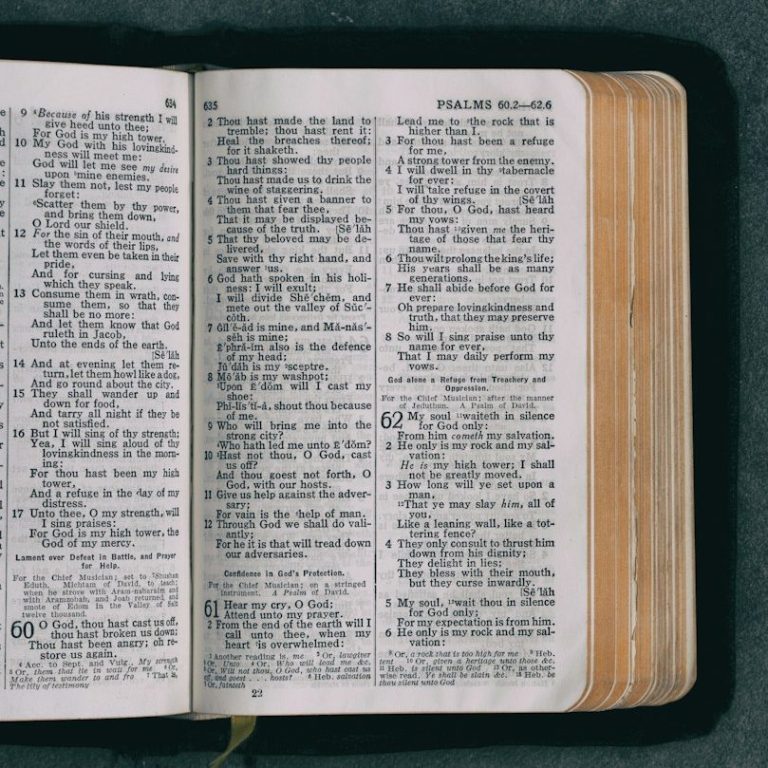 634
9 ⁴Because of his strength I will
give heed unto thee;
For God is my high tower.
10 My God with his lovingkind-
ness will meet me:
God will let me see my desire
upon mine enemies.
11 Slay them not, lest my people
forget:
Scatter them by thy power,
and bring them down,
O Lord our shield.
12 For the sin of their mouth, and
the words of their lips,
Let them even be taken in their
pride,
And for cursing and lying
which they speak.
13 Consume them in wrath, con-
sume them, so that they
shall be no more:
And let them know that God
ruleth in Jacob,
Unto the ends of the earth.
[Sē´läh
14 And at evening let them re-
turn, let them howl like a dog,
And go round about the city.
15 They shall wander up and
down for food,
And tarry all night if they be
not satisfied.
16 But I will sing of thy strength;
Yea, I will sing aloud of thy
lovingkindness in the morn-
ing:
For thou hast been my high
tower,
And a refuge in the day of my
distress.
17 Unto thee, O my strength, will
I sing praises:
For God is my high tower, the
God of my mercy.
Lament over Defeat in Battle, and Prayer
for Help.
For the Chief Musician; set to Shushan
Eduth. Michtam of David, to teach;
when he strove with Aram-naharaim and
with Aramzobah, and Joab returned, and
smote of Edom in the Valley of Salt
twelve thousand.
60 O God, thou hast cast us off,
thou hast broken us down;
Thou hast been angry; oh re-
store us again.
⁴ Acc. to Sept. and Vulg., My strength
Or, them that lie in wait for me Or,
Make them wander to and fro That is,
The lily of testimony
635
PSALMS 60.2—62.6
2 Thou hast made the land to
tremble; thou hast rent it:
Heal the breaches thereof;
for it shaketh.
3 Thou hast showed thy people
hard things:
Thou hast made us to drink the
wine of staggering.
4 Thou hast given a banner to
them that fear thee,
That it may be displayed be-
cause of the truth. [Sē´läh
5 That thy beloved may be de-
livered,
Save with thy right hand, and
answer us.
6 God hath spoken in his holi-
ness: I will exult;
I will divide Shē´chĕm, and
mete out the valley of Sŭc´-
cōth.
7 Gĭl´ĕ-ăd is mine, and Má-năs´-
sĕh is mine;
Ē´phrå-ĭm also is the defence
of my head;
Jū´dăh is my sceptre.
8 Mō´ăb is my washpot;
Upon Ē´dŏm will I cast my
shoe:
Phĭ-lĭs´tĭ-å, shout thou because
of me.
9 Who will bring me into the
strong city?
Who hath led me unto Ē´dŏm?
10 Hast not thou, O God, cast
us off?
And thou goest not forth, O
God, with our hosts.
11 Give us help against the adver-
sary;
For vain is the help of man.
12 Through God we shall do vali-
antly;
For he it is that will tread down
our adversaries.
Confidence in God's Protection.
For the Chief Musician; on a stringed
instrument. A Psalm of David.
61 Hear my cry, O God;
Attend unto my prayer.
2 From the end of the earth will I
call unto thee, when my
heart is overwhelmed:
Another reading is, me. Or, lawgiver
Or, Unto Or, Who will lead me &c.
Or, Wilt not thou, O God, who hast cast us
off, and goest . . . hosts? Heb. salvation
Or, fainteth
22
Lead me to the rock that is
higher than I.
3 For thou hast been a refuge
for me,
A strong tower from the enemy.
4 I will dwell in thy tabernacle
for ever:
I will take refuge in the covert
of thy wings. [Sē´läh
5 For thou, O God, hast heard
my vows:
Thou hast given me the heri-
tage of those that fear thy
name.
6 Thou wilt prolong the king's life;
His years shall be as many
generations.
7 He shall abide before God for
ever:
Oh prepare lovingkindness and
truth, that they may preserve
him.
8 So will I sing praise unto thy
name for ever,
That I may daily perform my
vows.
God alone a Refuge from Treachery and
Oppression.
For the Chief Musician; after the manner
of Jeduthun. A Psalm of David.
62 My soul waiteth in silence
for God only:
From him cometh my salvation.
2 He only is my rock and my sal-
vation:
He is my high tower; I shall
not be greatly moved.
3 How long will ye set upon a
man,
That ye may slay him, all of
you,
Like a leaning wall, like a tot-
tering fence?
4 They only consult to thrust him
down from his dignity;
They delight in lies;
They bless with their mouth,
but they curse inwardly.
[Sē´läh
5 My soul, wait thou in silence
for God only;
For my expectation is from him.
6 He only is my rock and my sal-
vation:
Or, a rock that is too high for me Heb.
tent Or, given a heritage unto those &c.
Heb. is silent unto God Or, as other-
wise read, Ye shall be slain &c. Heb. be
thou silent unto God